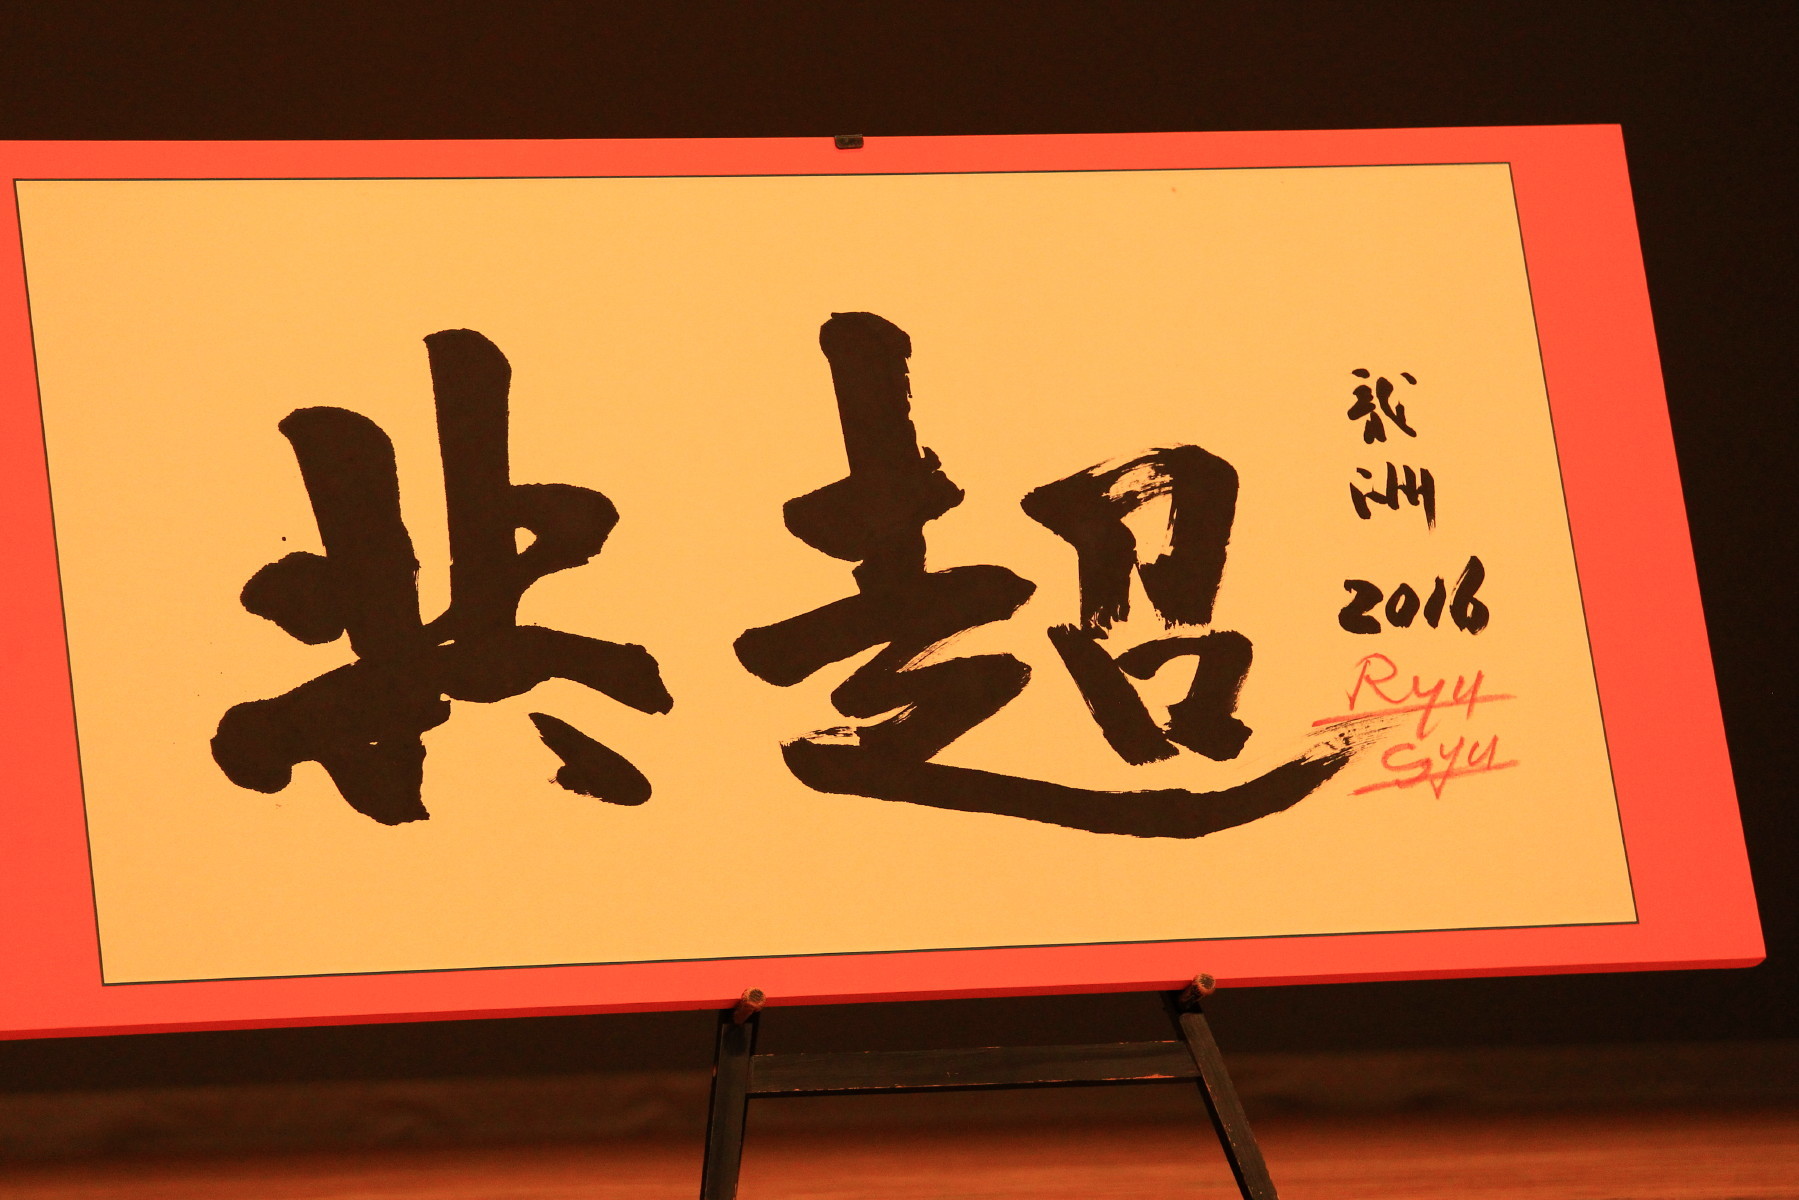 共超
龍洲
2016
Ryu
Syu